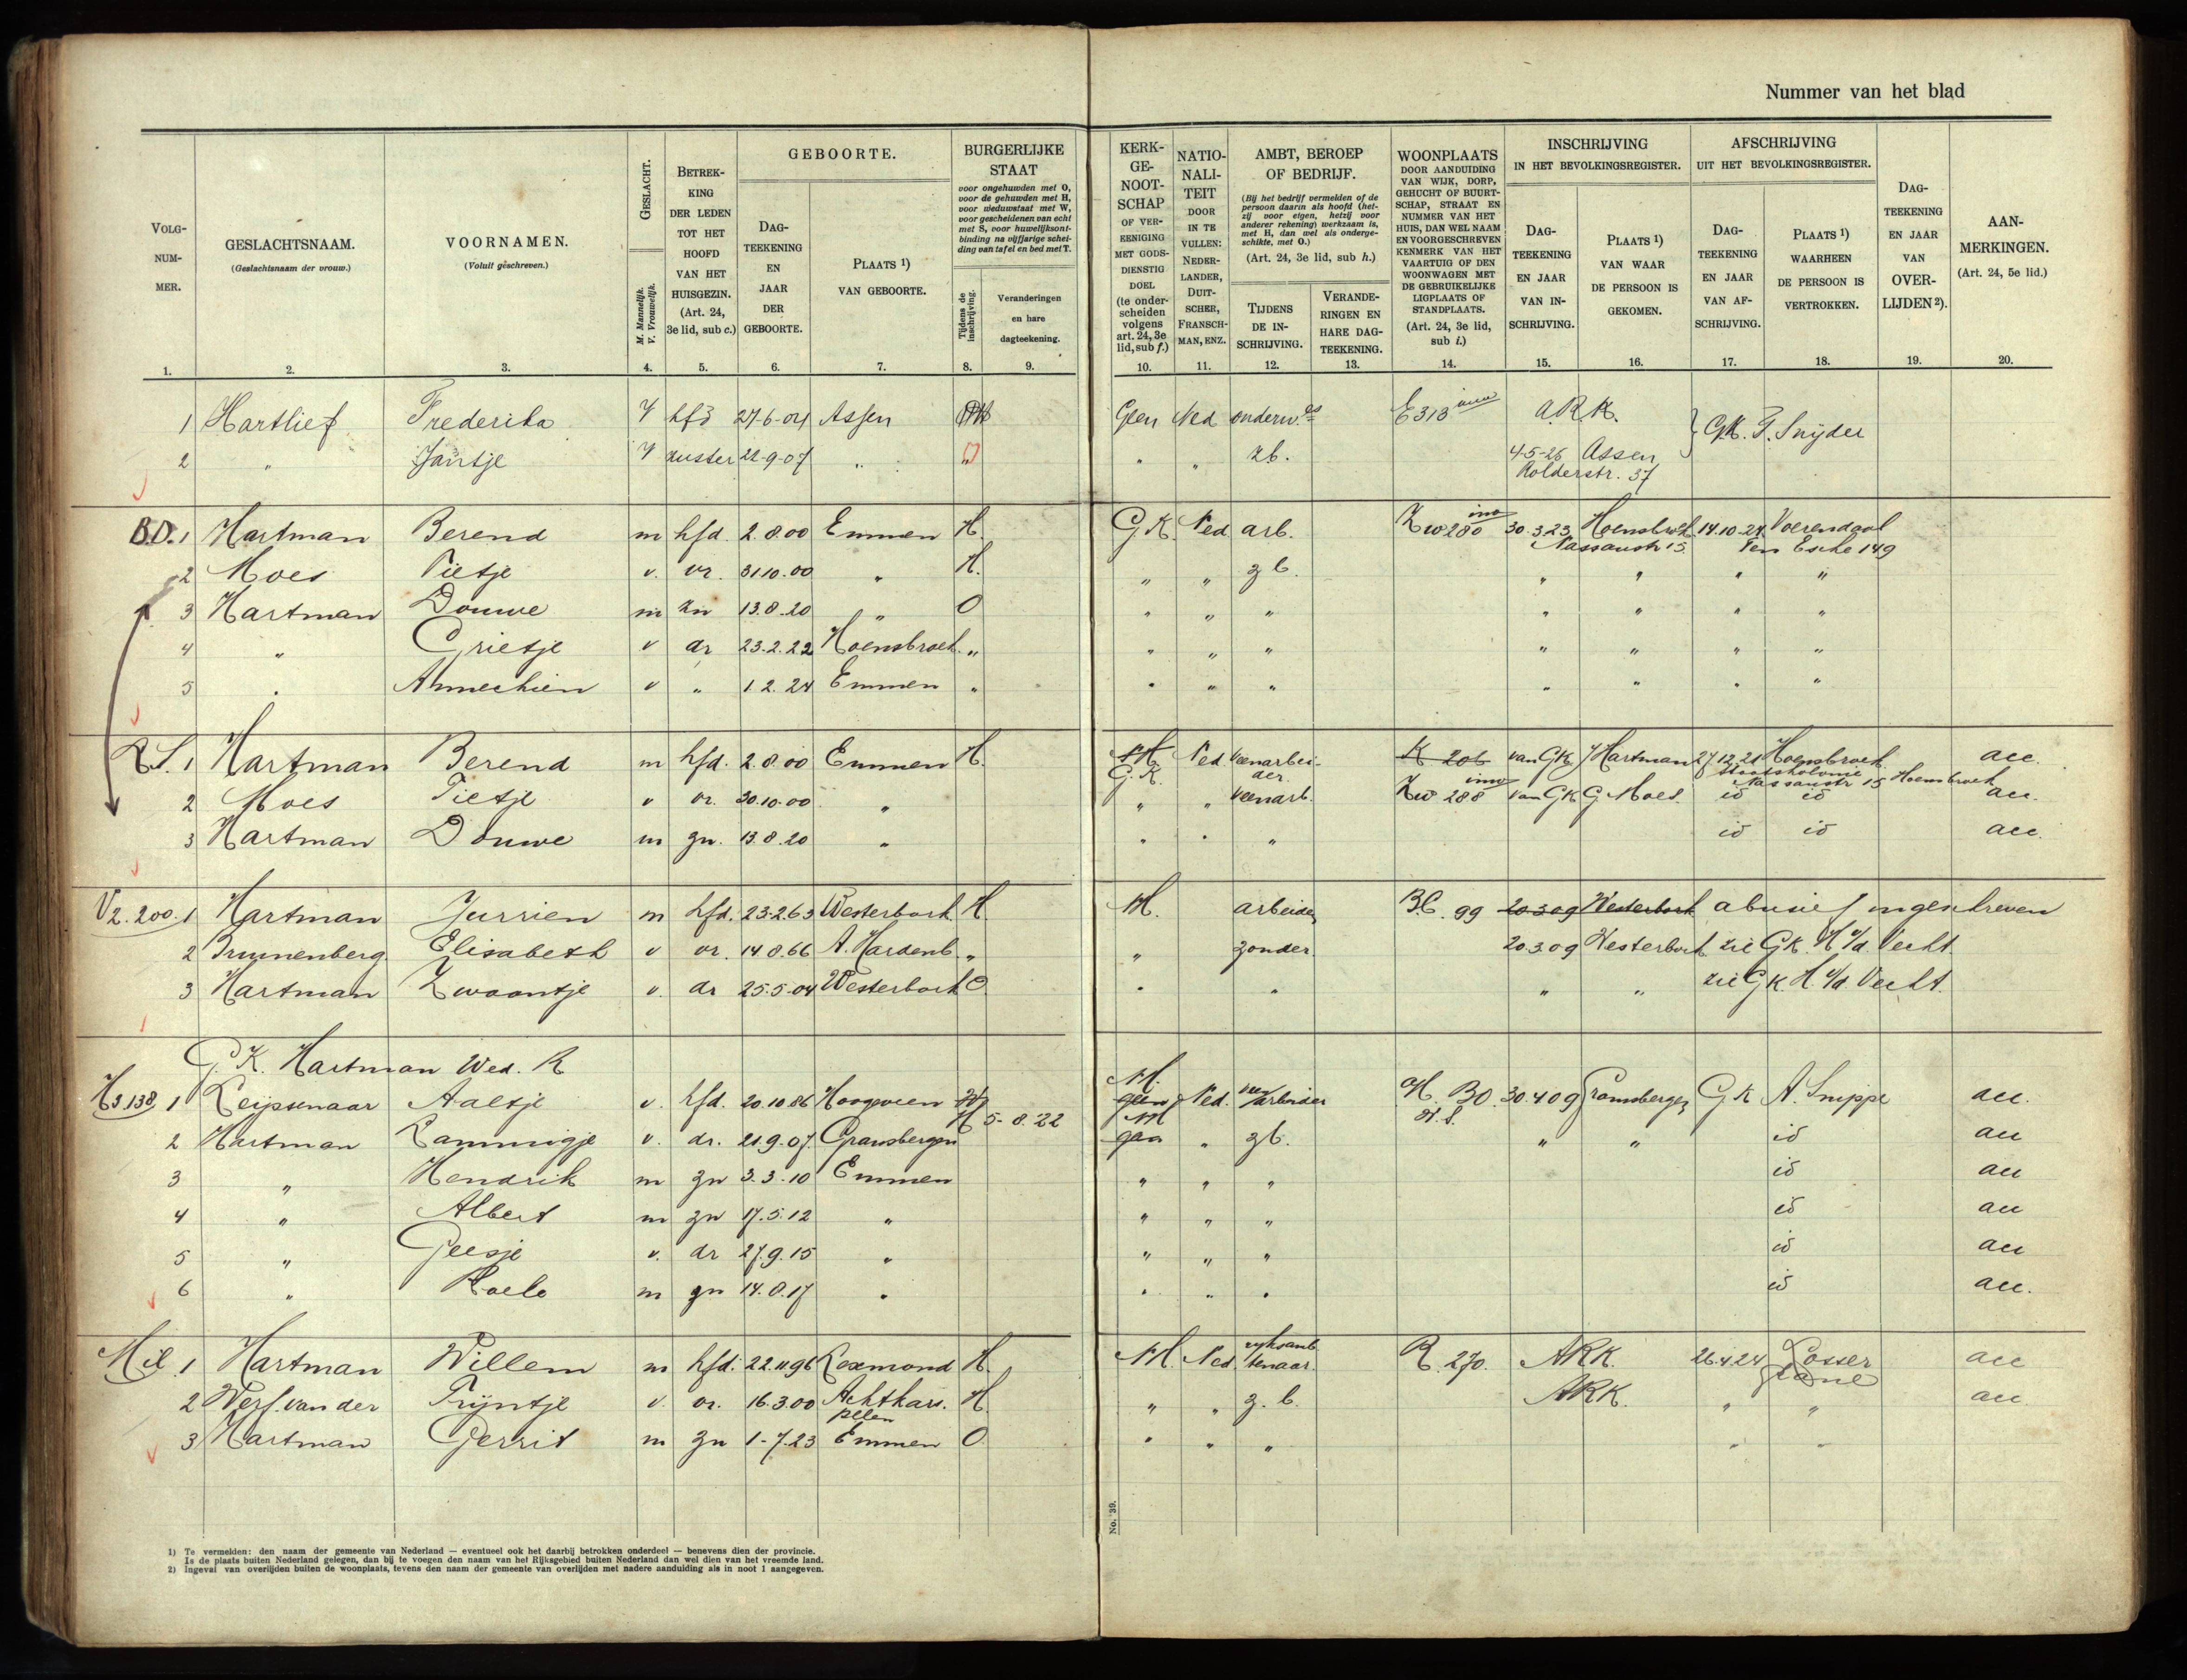 Nummer van het blad
VOLG-NUM-MER.
GESLACHTSNAAM.
(Geslachtsnaam der vrouw.)
VOORNAMEN.
(Voluit geschreven.)
GESLACHT.
M. Mannelijk.
V. Vrouwelijk.
BETREK-KING DER LEDEN TOT HET HOOFD VAN HET HUISGEZIN.
(Art. 24, 3e lid, sub c.)
GEBOORTE.
DAG-TEEKENING EN JAAR DER GEBOORTE.
PLAATS 1) VAN GEBOORTE.
BURGERLIJKE STAAT
voor ongehuwden met O,
voor de gehuwden met H,
voor weduwstaat met W,
voor gescheidenen van echt
met S, voor huwelijksont-
binding na vijfjarige schei-
ding van tafel en bed met T.
Tijdens de inschrijving.
Veranderingen en hare dagteekening.
KERK-GE-NOOT-SCHAP
OF VER-EENIGING MET GODS-DIENSTIG DOEL
(te onder-scheiden volgens art. 24, 3e lid, sub f.)
NATIO-NALI-TEIT
DOOR IN TE VULLEN: NEDER-LANDER, DUIT-SCHER, FRANSCH-MAN, ENZ.
AMBT, BEROEP OF BEDRIJF.
(Bij het bedrijf vermelden of de
persoon daarin als hoofd (het-
zij voor eigen, hetzij voor
anderer rekening) werkzaam is,
met H, dan wel als onderge-
schikte, met O.)
(Art. 24, 3e lid, sub h.)
TIJDENS DE IN-SCHRIJVING.
VERANDE-RINGEN EN HARE DAG-TEEKENING.
WOONPLAATS
DOOR AANDUIDING
VAN WIJK, DORP,
GEHUCHT OF BUURT-
SCHAP, STRAAT EN
NUMMER VAN HET
HUIS, DAN WEL NAAM
EN VOORGESCHREVEN
KENMERK VAN HET
VAARTUIG OF DEN
WOONWAGEN MET
DE GEBRUIKELIJKE
LIGPLAATS OF
STANDPLAATS.
(Art. 24, 3e lid, sub i.)
INSCHRIJVING
IN HET BEVOLKINGSREGISTER.
DAG-TEEKENING EN JAAR VAN IN-SCHRIJVING.
PLAATS 1) VAN WAAR DE PERSOON IS GEKOMEN.
AFSCHRIJVING
UIT HET BEVOLKINGSREGISTER.
DAG-TEEKENING EN JAAR VAN AF-SCHRIJVING.
PLAATS 1) WAARHEEN DE PERSOON IS VERTROKKEN.
DAG-TEEKENING EN JAAR VAN OVER-LIJDEN 2).
AAN-MERKINGEN.
(Art. 24, 5e lid.)
1. 2. 3. 4. 5. 6. 7. 8. 9. 10. 11. 12. 13. 14. 15. 16. 17. 18. 19. 20.
1 Hartlief Frederika V hfd 27-6-04 Assen Geen Ned onderw.es E313 A.R.K. G.K. F. Snijder
2 " Jantje V zuster 22-9-07 " " " zb. 4-5-26 Assen
Rolderstr. 37
B.D. 1 Hartman Berend m hfd 2.8.00 Emmen H. G.K. Ned arb. Zw 280 30.3.23 Hoensbroek 14.10.24 Voerendaal
Nassaustr 15. Ten Esche 149
2 Moes Pietje v. vr. 31.10.00 " H. " " z b. " " " "
3 Hartman Douwe m zn 13.8.20 " O " " " " " " "
4 " Grietje v dr 23.2.22 Hoensbroek " " " " " " " "
5 " Ahmechien v " 1.2.24 Emmen " " " " " " " "
R.S. 1 Hartman Berend m hfd. 2.8.00 Emmen H. NH Ned Veenarbei-der. K 206 van GK J Hartman 27.12.21 Hoensbroek acc.
G.K. Staatskolonie
Nassaustr 15 Hoensbroek
2 Moes Pietje v vr. 30.10.00 " " " veenarb. Zw 288 van GK G Moes. id id acc.
3 Hartman Douwe m zn. 13.8.20 " " " " id id acc.
V2.200. 1 Hartman Jurrien m hfd. 23.2.63 Westerbork H. NH. arbeider B.C. 99 20.3.09 Westerbork abusief ingeschreven
2 Brunnenberg Elisabeth v vr. 14.8.66 A. Hardenb. " " zonder 20.3.09 Westerbork zie G.K. H v/d. Vecht.
3 Hartman Zwaantje v. dr 25.5.04 Westerbork O " " " " zie G.K. H. v/d. Vecht.
G.K. Hartman Wed. R
H3.138 1 Leijssenaar Aaltje v. hfd. 20.10.86 Hoogeveen H 5-8.22 NH. geen Ned. veenarbeider H. BO. 30.4.09 Gramsbergen G K A. Snippe acc.
2 Hartman Lammigje v. dr. 21.9.07. Gramsbergen NH geen " zb. " " id acc
3 " Hendrik m zn 3.3.10 Emmen " " " id acc
4 " Albert m zn 17.5.12 " " " " id acc
5 " Geesje v. dr 27.9.15 " " " " id acc
6 " Roelo m zn 14.8.17 " " " " id acc.
Mil. 1 Hartman Willem m hfd. 22.11.96 Lexmond H. NH. Ned. rijksambtenaar. R. 270. ARK. 26.4.24 Losser acc
Glane
2 Werf. van der Trijntje v. vr. 16.3.00 Achtkars. H. " " z. b. ARK. " " acc
pelen
3 Hartman Gerrit m zn 1-7.23 Emmen O. " " " " "
No. 39.
1) Te vermelden: den naam der gemeente van Nederland — eventueel ook het daarbij betrokken onderdeel — benevens dien der provincie.
Is de plaats buiten Nederland gelegen, dan bij te voegen den naam van het Rijksgebied buiten Nederland dan wel dien van het vreemde land.
2) Ingeval van overlijden buiten de woonplaats, tevens den naam der gemeente van overlijden met nadere aanduiding als in noot 1 aangegeven.